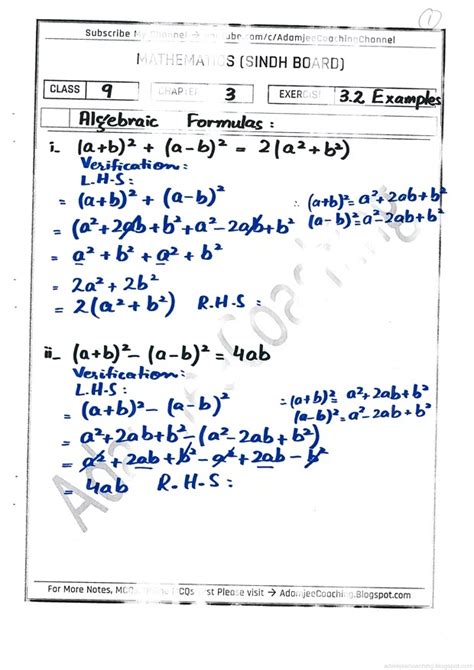 ①
Subscribe My Channel → youtube.com/c/AdamjeeCoachingChannel
MATHEMATICS (SINDH BOARD)
CLASS 9 CHAPTER 3 EXERCISE 3.2 Examples
Algebraic Formulas :
i. (a+b)² + (a-b)² = 2(a²+b²)
Verification :
L.H-S :
= (a+b)² + (a-b)² ∴ (a+b)² = a²+2ab+b²
(a-b)² = a²-2ab+b²
= (a²+2ab+b²+a²-2ab+b²
= a² + b² + a² + b²
= 2a² + 2b²
= 2(a² + b²) R.H-S :
ii_ (a+b)² - (a-b)² = 4ab
Verification :
L.H-S :
= (a+b)² - (a-b)² ∴ (a+b)² = a²+2ab+b²
(a-b)² = a²-2ab+b²
= a²+2ab+b²-(a²-2ab+b²)
= a² + 2ab + b² - a² + 2ab - b²
= 4ab R.H-S :
For More Notes, MCQs, Online MCQs Test Please visit → AdamjeeCoaching.Blogspot.com
adamjeecoaching.blogspot.com